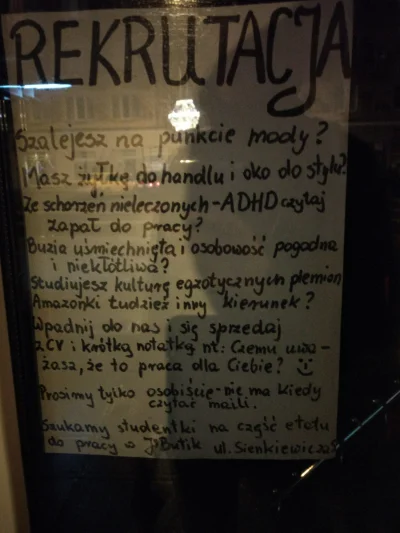 REKRUTACJA
Szalejesz na punkcie mody?
Masz żyłkę do handlu i oko do stylu?
Ze schorzeń nieleczonych - ADHD czytaj
zapał do pracy?
Buzia uśmiechnięta i osobowość pogodna
i niekłótliwa?
Studiujesz kulturę egzotycznych plemion
Amazonki tudzież inny kierunek?
Wpadnij do nas i się sprzedaj
z CV i krótką notatką nt: Czemu uwa-
żasz, że to praca dla Ciebie? :)
Prosimy tylko osobiście - nie ma kiedy
czytać maili.
Szukamy studentki na część etatu
do pracy w Butik ul. Sienkiewicza